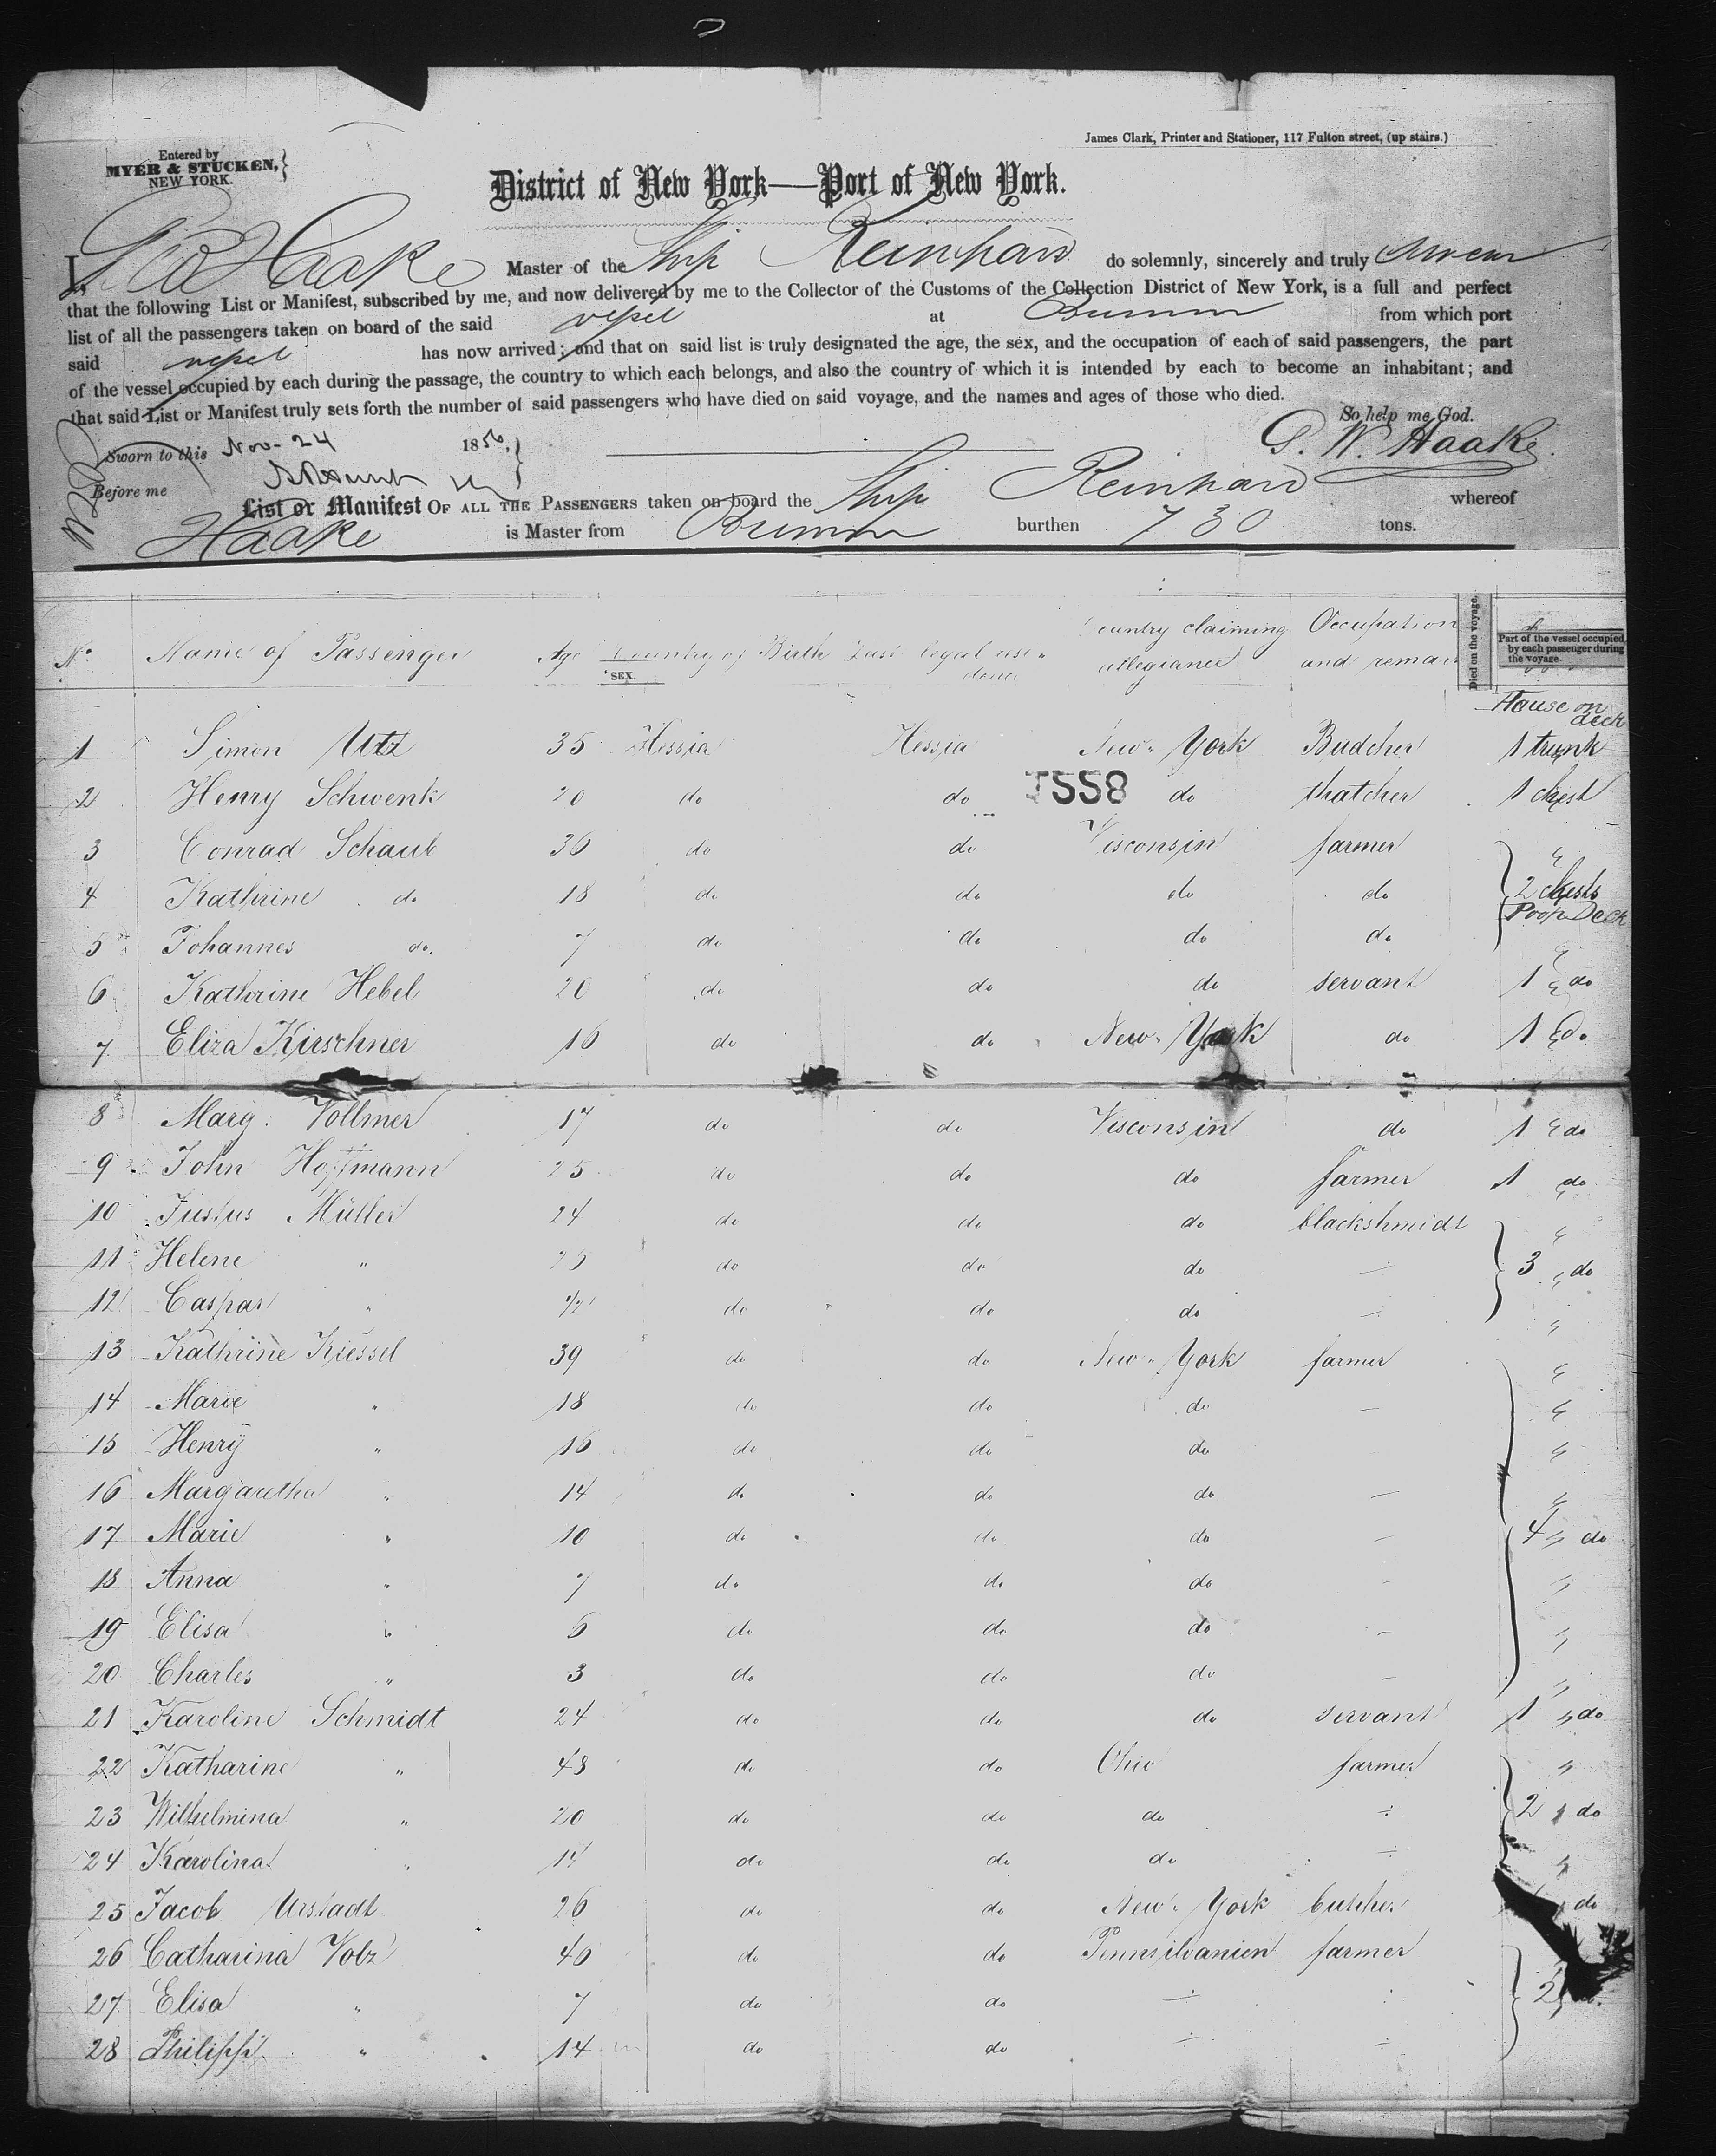 Entered by
MYER & STUCKEN,
NEW YORK.
James Clark, Printer and Stationer, 117 Fulton street, (up stairs.)
District of New York—Port of New York.
I, Geo Haake Master of the Ship Reinhard do solemnly, sincerely and truly swear
that the following List or Manifest, subscribed by me, and now delivered by me to the Collector of the Customs of the Collection District of New York, is a full and perfect
list of all the passengers taken on board of the said vessel at Bremen from which port
said vessel has now arrived; and that on said list is truly designated the age, the sex, and the occupation of each of said passengers, the part
of the vessel occupied by each during the passage, the country to which each belongs, and also the country of which it is intended by each to become an inhabitant; and
that said List or Manifest truly sets forth the number of said passengers who have died on said voyage, and the names and ages of those who died.
So help me God.
Sworn to this Nov. 24 1856,
G. W. Haake
Before me
List or Manifest OF ALL THE PASSENGERS taken on board the Ship Reinhard whereof
Haake is Master from Bremen burthen 730 tons.
No. Name of Passenger Age Country of Birth Last legal residence Country claiming allegiance Occupation and remark Died on the voyage. Part of the vessel occupied by each passenger during the voyage.
SEX.
House on deck
1 Simon Utz 35 Hessia Hessia New-York Budcher 1 trunk
1558
2 Henry Schwenk 20 do do do thatcher 1 chest
3 Conrad Schaub 36 do do Wisconsin farmer "
4 Kathrine do 18 do do do do 2 chests
Poop Deck
5 Johannes do. 7 do do do do "
6 Kathrine Hebel 20 do do do servant 1 " do
7 Eliza Kirschner 16 do do New-York do 1 " do
8 Marg. Vollmer 17 do do Wisconsin do 1 " do
9 John Hoffmann 25 do do do farmer 1 " do
10 Justus Müller 24 do do do blackshmidt "
11 Helene " do do do — 3 " do
12 Caspar " do do do — "
13 Kathrine Kiessel 39 do do New-York farmer "
14 Marie " 18 do do do — "
15 Henry " 16 do do do "
16 Margaretha " 14 do do do — "
17 Marie " 10 do do do — 4 " do
18 Anna " 7 do do do - "
19 Elisa " 5 do do do — "
20 Charles " 3 do do do — "
21 Karoline Schmidt 24 do do do servant 1 " do
22 Katharine " 48 do do Ohio farmer "
23 Wilhelmina " 20 do do do ÷ 2 " do
24 Karolina " do do do ÷ "
25 Jacob Urstadt 26 do do New-York butcher " do
26 Catharina Volz 46 do do Pennsilvanien farmer
27 Elisa " 7 do do ÷ : 2
28 Philipp " 14 m do do ÷ ÷